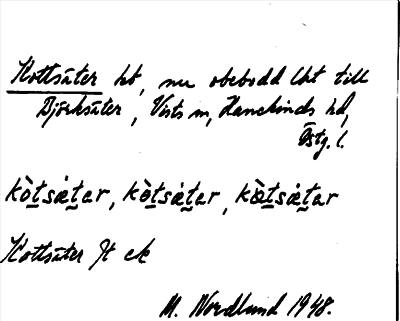 Kottsäter ht, nu obebodd lht till
Björksäter, Vists sn, Hanekinds hd,
Östg. l.
kòtsätar, kòtsätar, kòtsätar
Kottsäter Jt ek
M. Nordlund 1948.